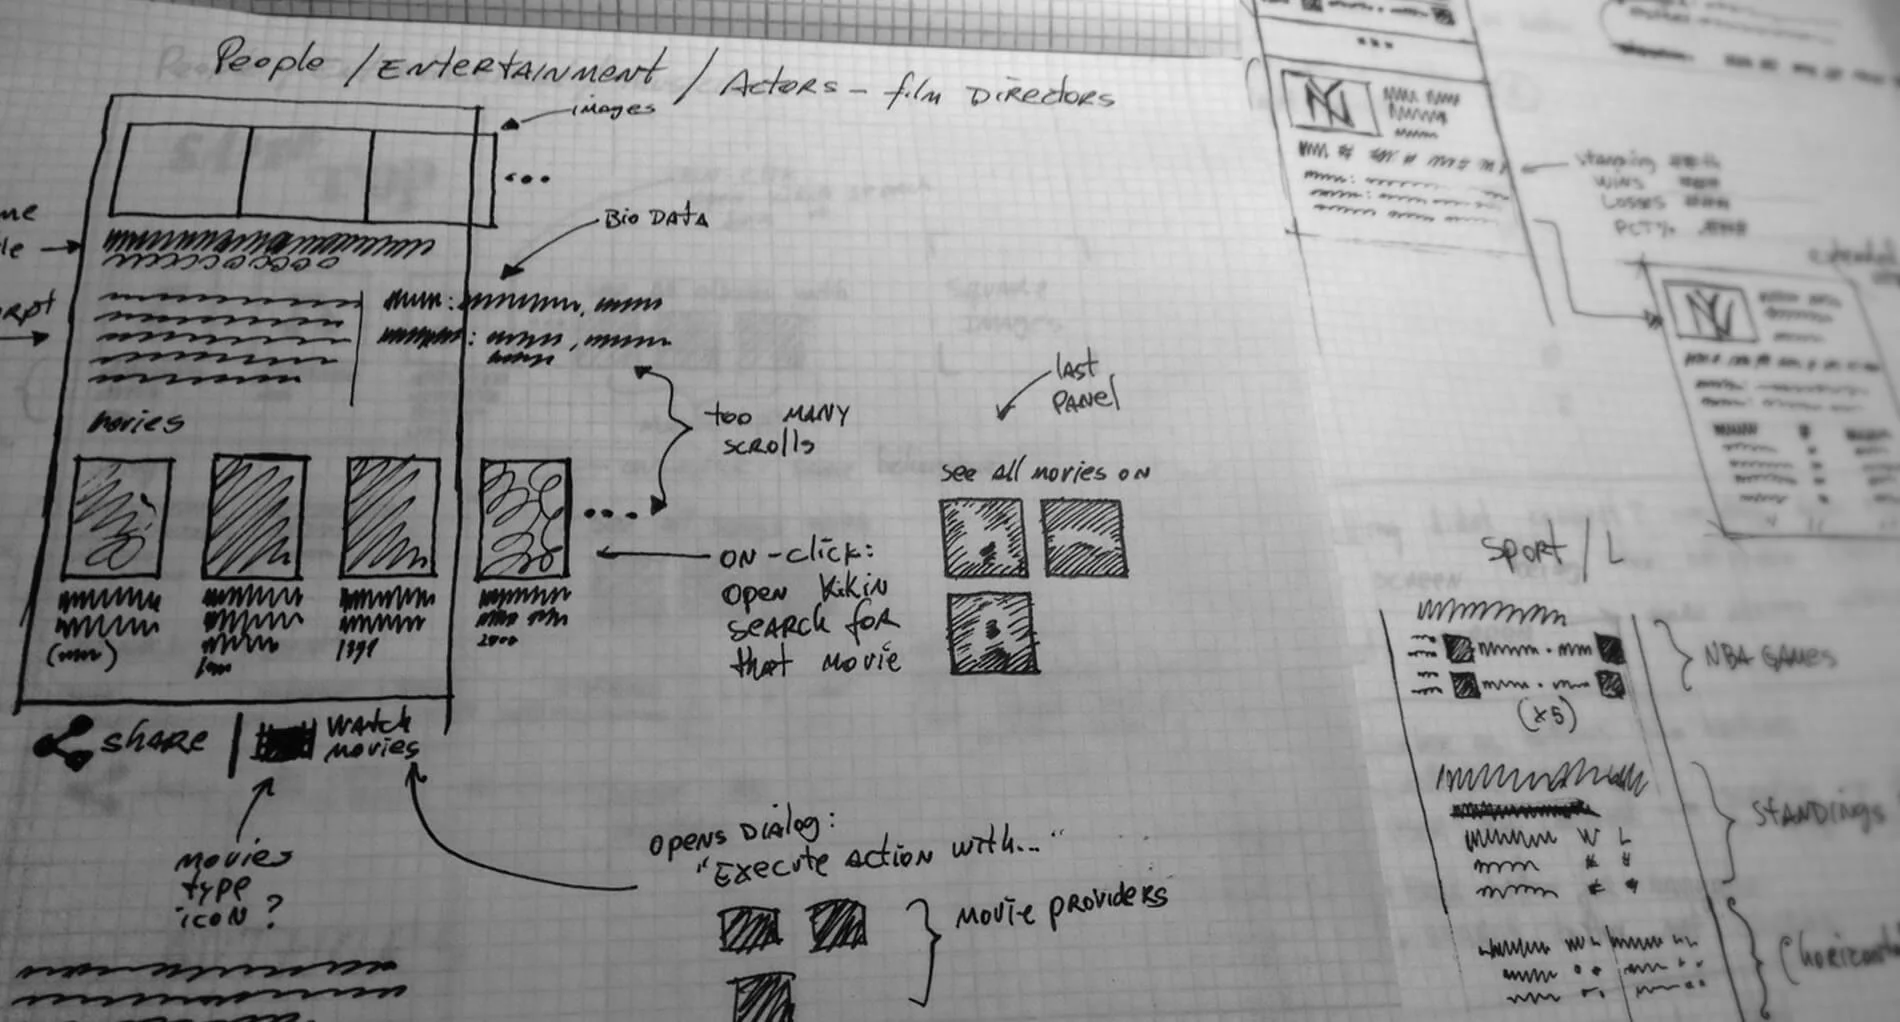 People / Entertainment / Actors - film Directors
images
...
Bio Data
movies
too many
scrolls
last
panel
see all movies on
...
on-click:
open kikin
search for
that movie
1998
2000
share | watch
movies
movies
type
icon?
opens dialog:
"Execute action with..."
movie providers
...
NY
standing
wins
losses
PCT%
NY
extended
sport / L
NBA games
(x5)
standings
W L
(horizontal